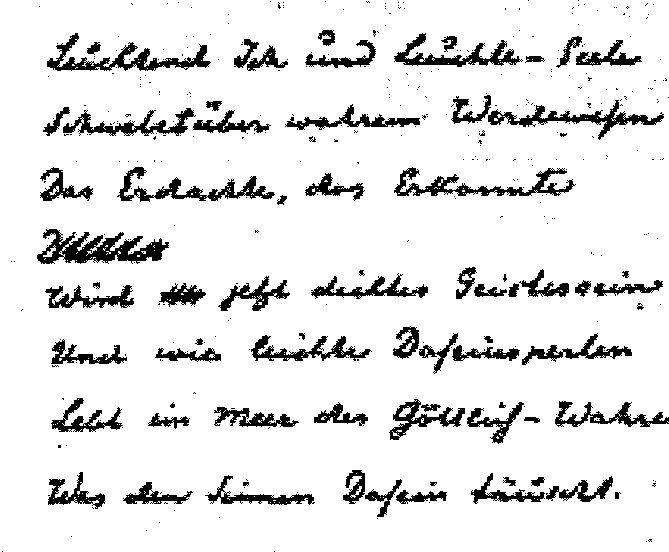 Leuchtend Ich und Leuchte-Seele
Schwebet über wahrem Werdewesen
Das Erdachte, das Erkannte
Wird jetzt dichtes Geistessein
Und wie leichte Daseinsperlen
Lebt im Meer des Göttlich-Wahre
Was den Sinnen Dasein täuscht.